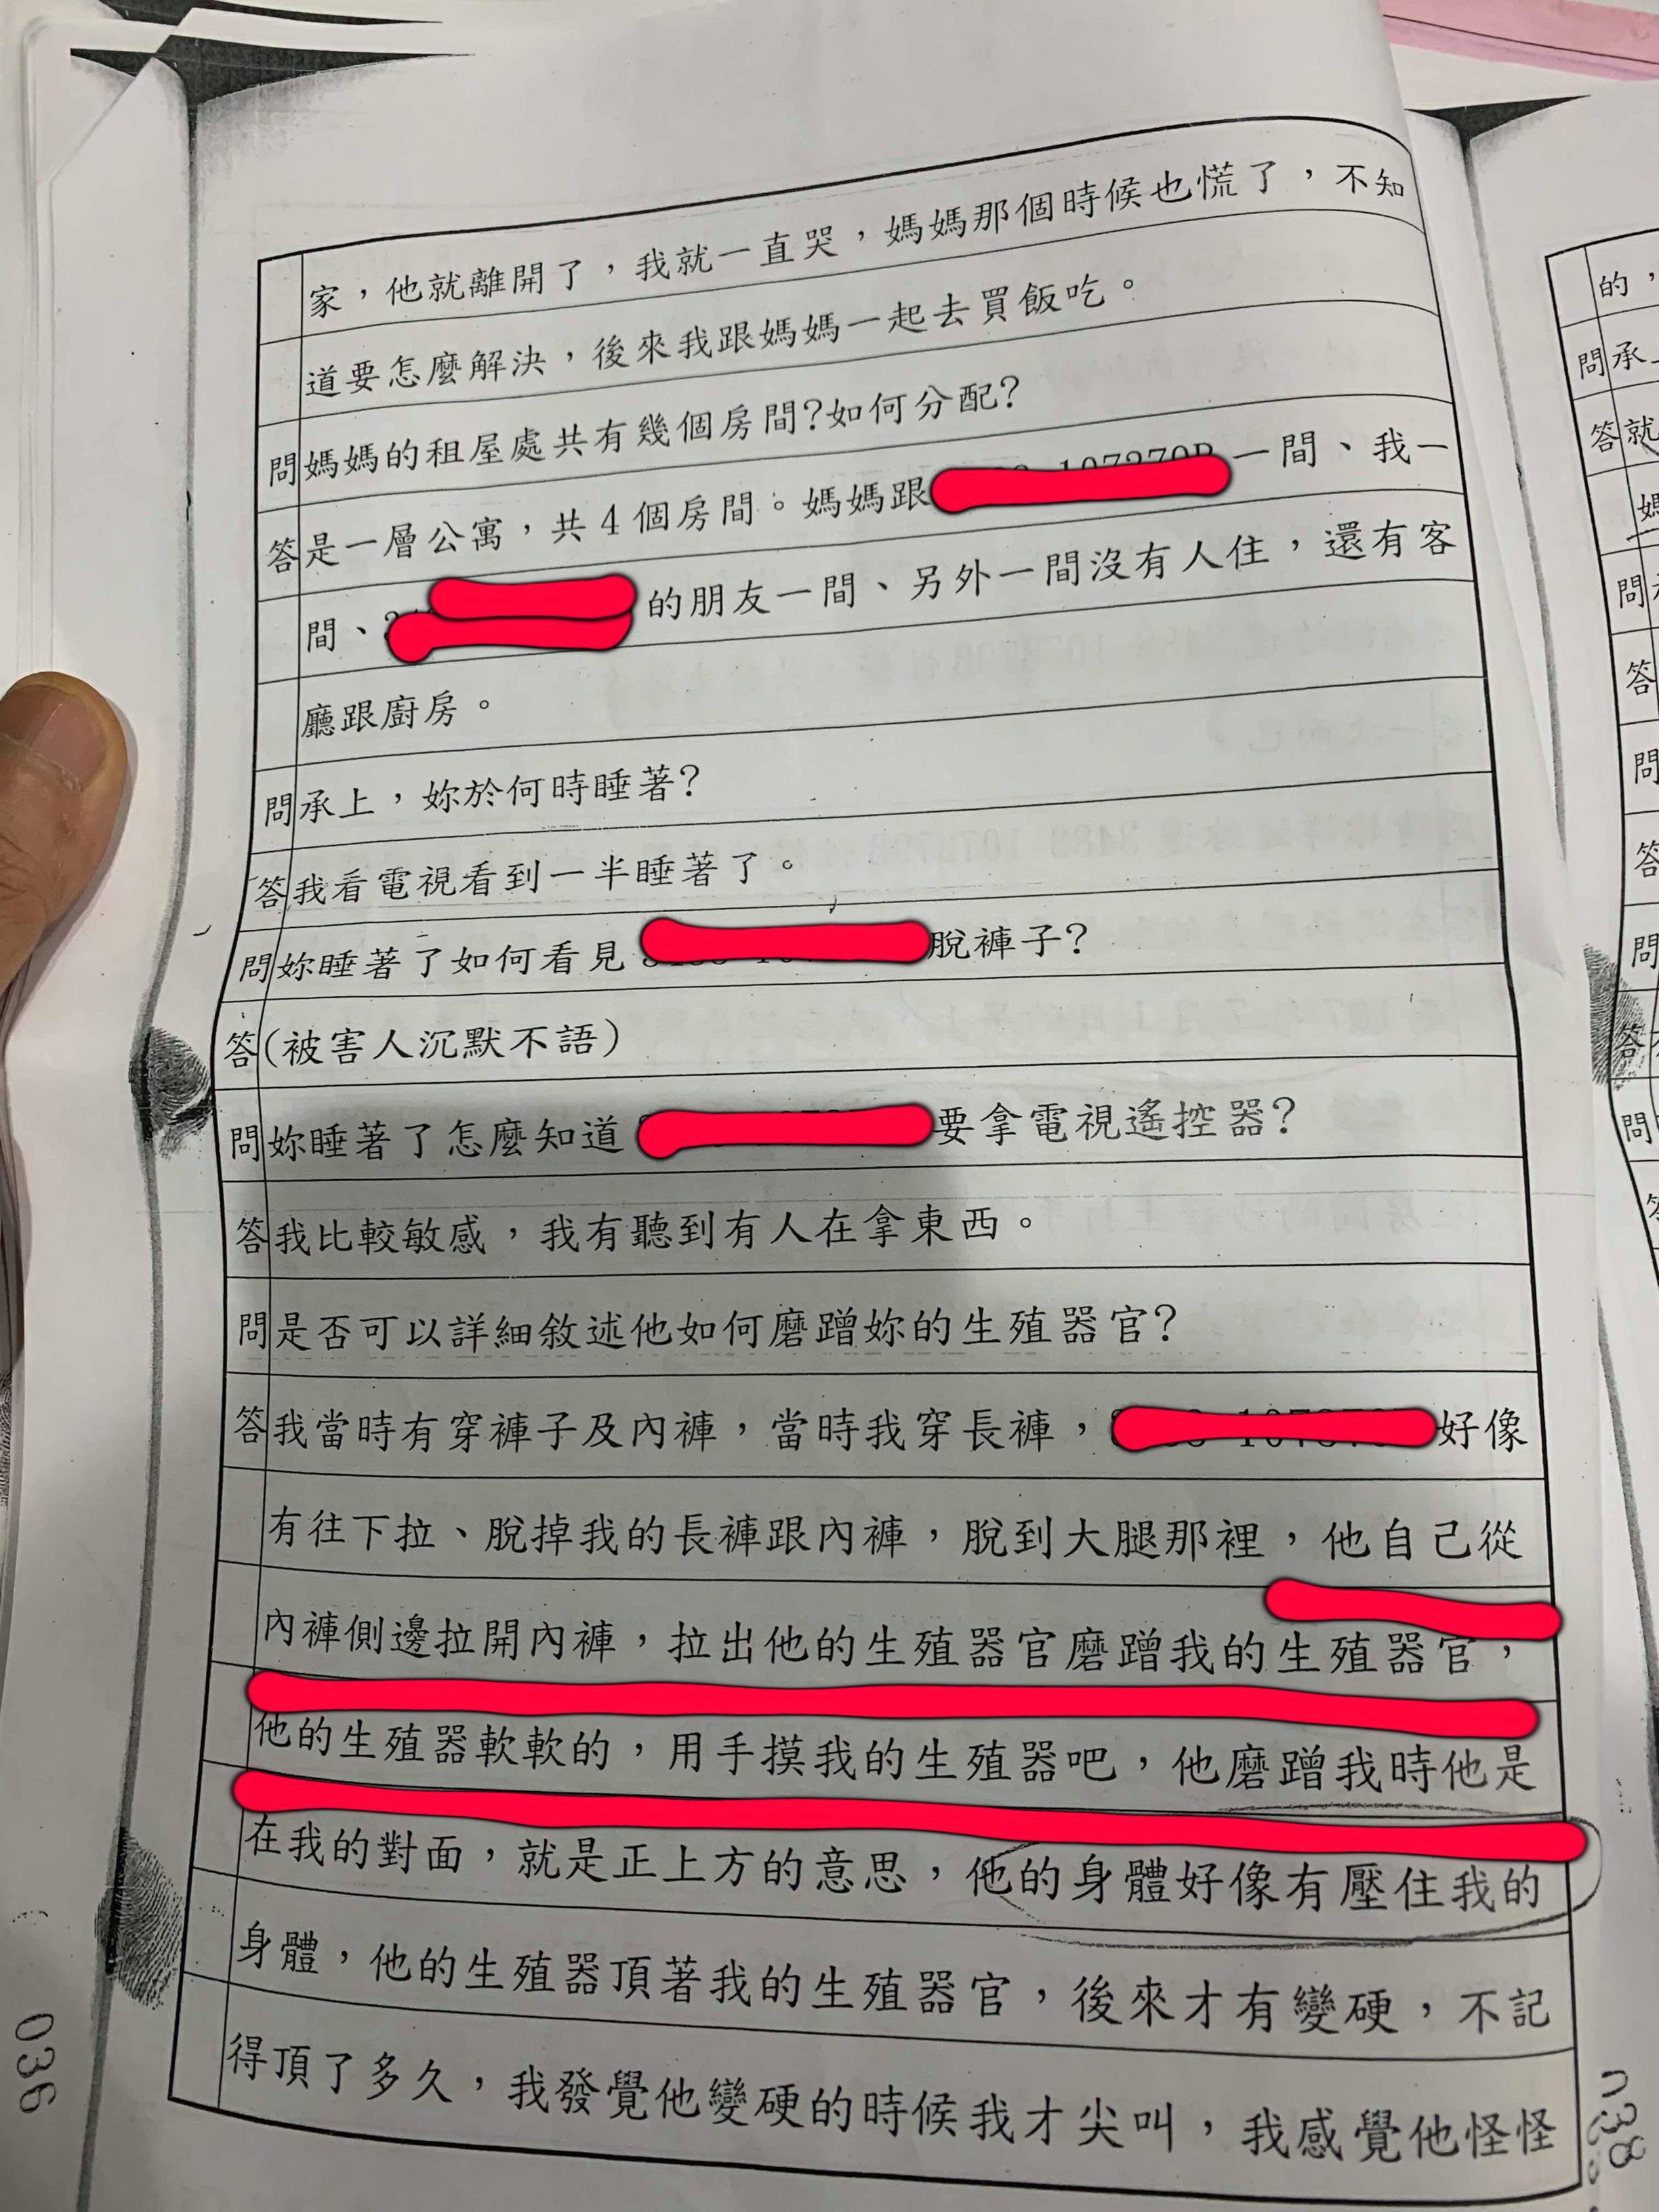 家，他就離開了，我就一直哭，媽媽那個時候也慌了，不知
道要怎麼解決，後來我跟媽媽一起去買飯吃。
問媽媽的租屋處共有幾個房間?如何分配?
答是一層公寓，共4個房間。媽媽跟 一間、我一
間、 的朋友一間、另外一間沒有人住，還有客
廳跟廚房。
問承上，妳於何時睡著?
答我看電視看到一半睡著了。
問妳睡著了如何看見 脫褲子?
答(被害人沉默不語)
問妳睡著了怎麼知道 要拿電視遙控器?
答我比較敏感，我有聽到有人在拿東西。
問是否可以詳細敘述他如何磨蹭妳的生殖器官?
答我當時有穿褲子及內褲，當時我穿長褲， 好像
有往下拉、脫掉我的長褲跟內褲，脫到大腿那裡，他自己從
內褲側邊拉開內褲，拉出他的生殖器官磨蹭我的生殖器官，
他的生殖器軟軟的，用手摸我的生殖器吧，他磨蹭我時他是
在我的對面，就是正上方的意思，他的身體好像有壓住我的
身體，他的生殖器頂著我的生殖器官，後來才有變硬，不記
得頂了多久，我發覺他變硬的時候我才尖叫，我感覺他怪怪
036
的，
問承上
答就
問
答
問
答
問
答
問
038